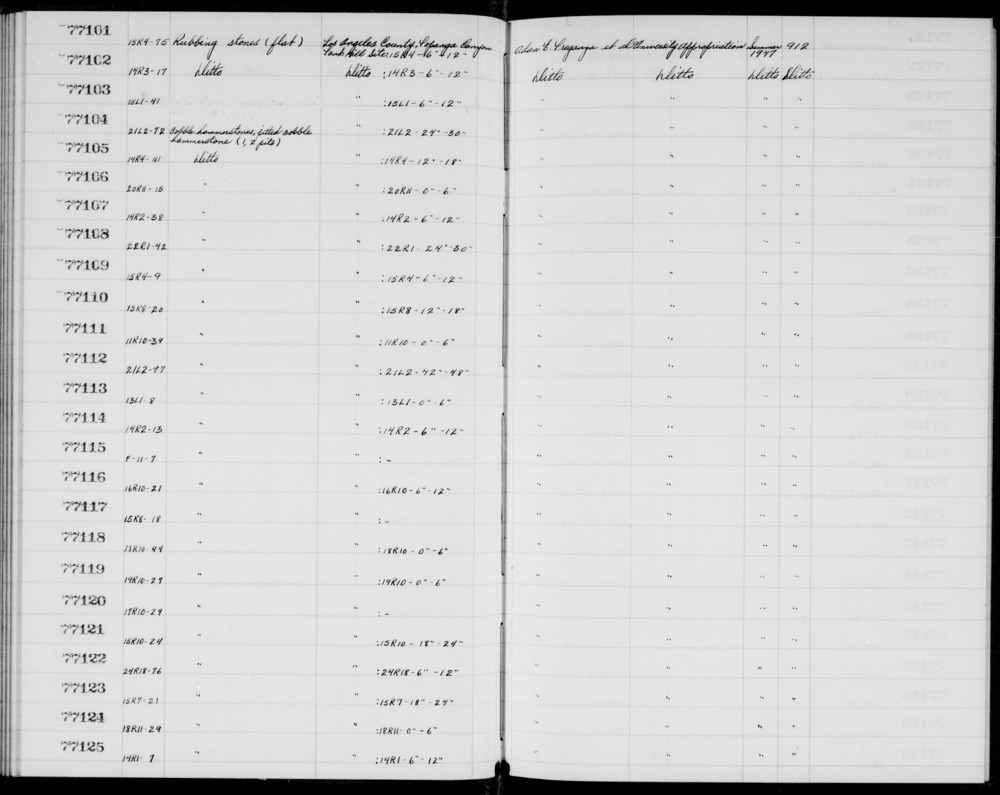 77101 15R4-75 Rubbing stones (flat) Los Angeles County; Topanga Canyon University Appropriation Summer 912
Tank Hill Site: 15R4-6"-12" 1947
77102 14R3-17 Ditto Ditto :14R3-6"-12" Ditto Ditto Ditto Ditto
77103 15L1-41 " :15L1-6"-12" " " " "
77104 21L2-72 Cobble hammerstones, pitted cobble " :21L2-24"-30" " " " "
hammerstone (1, 2 pits)
77105 14R4-111 Ditto " :14R4-12"-18" " " " "
77106 20R11-15 " " :20R11-0"-6" " " " "
77107 14R2-38 " " :14R2-6"-12" " " " "
77108 22R1-42 " " :22R1-24"-30" " " " "
77109 15R4-9 " " :15R4-6"-12" " " " "
77110 15R8-20 " " :15R8-12"-18" " " " "
77111 11R10-39 " " :11R10-0"-6" " " " "
77112 21L2-97 " " :21L2-42"-48" " " " "
77113 13L1-8 " " :13L1-0"-6" " " " "
77114 14R2-13 " " :14R2-6"-12" " " " "
77115 F-11-7 " " :- " " " "
77116 16R10-21 " " :16R10-6"-12" " " " "
77117 15R8-18 " " :- " " " "
77118 18R10-44 " " :18R10-0"-6" " " " "
77119 19R10-27 " " :19R10-0"-6" " " " "
77120 17R10-29 " " :- " " " "
77121 15R10-24 " " :15R10-18"-24" " " " "
77122 24R18-76 " " :24R18-6"-12" " " " "
77123 15R7-21 " " :15R7-18"-24" " " " "
77124 18R11-29 " " :18R11-0"-6" " " " "
77125 14R1-7 " " :14R1-6"-12" " " " "